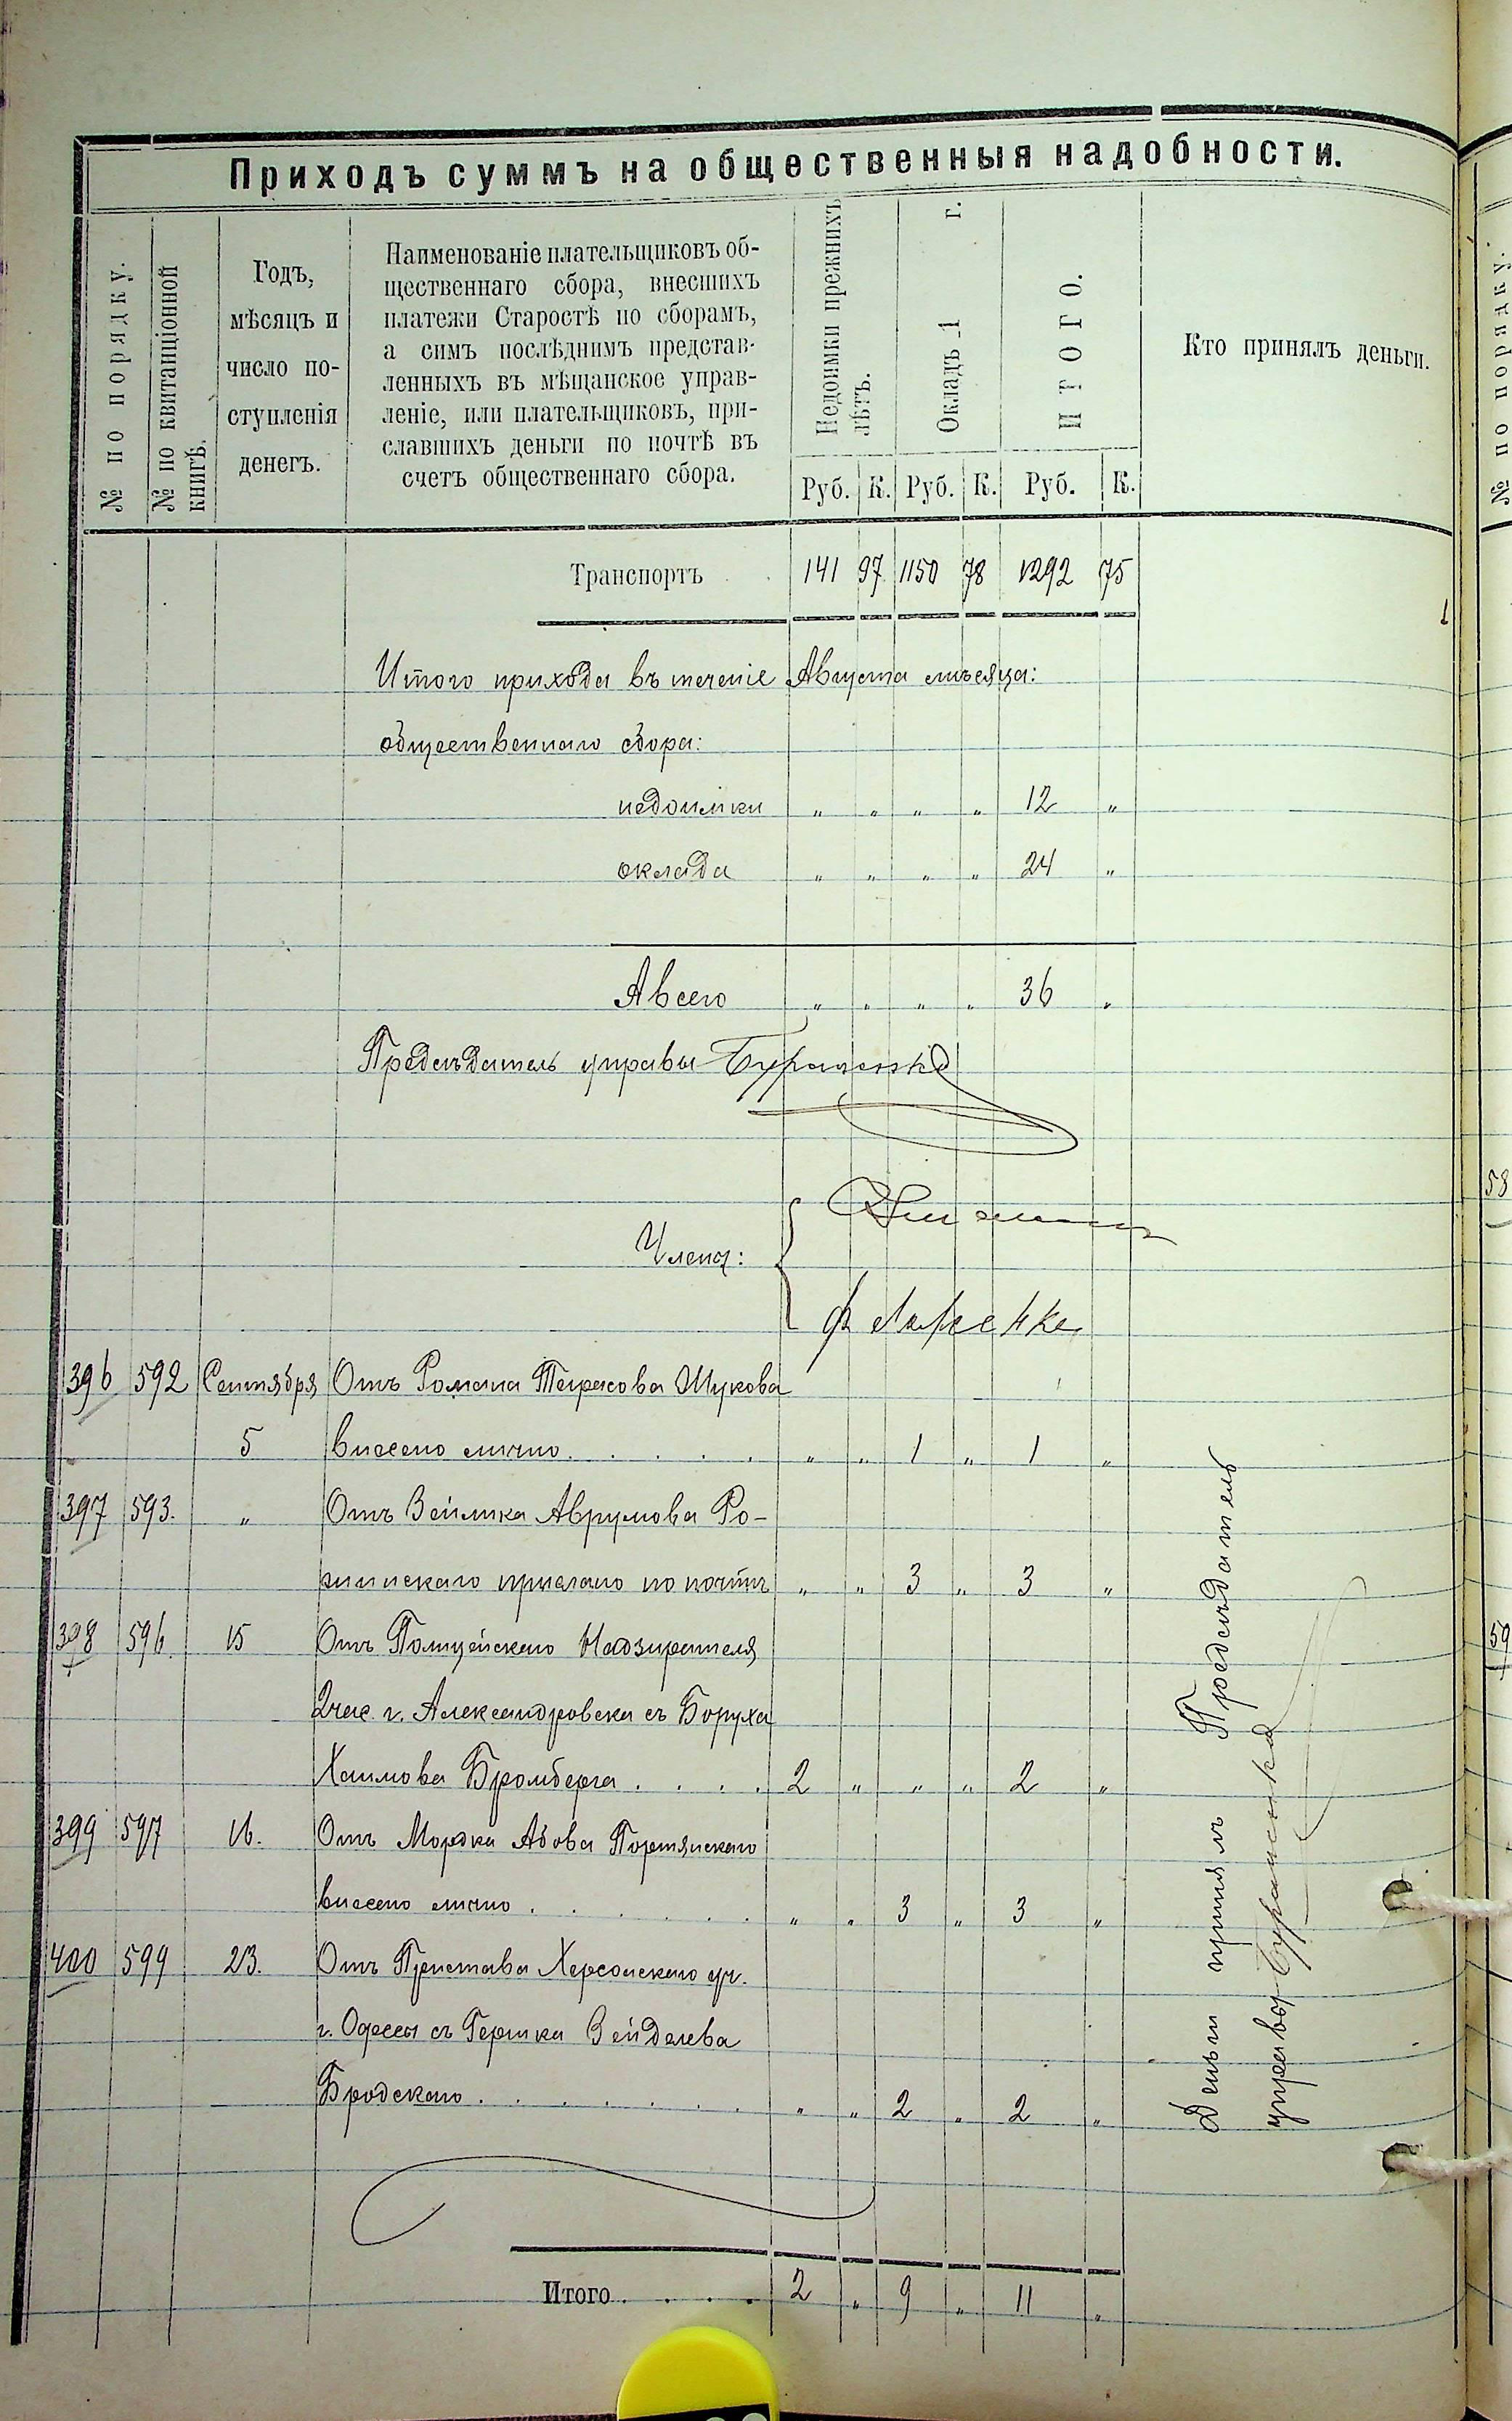 Приходъ суммъ на общественныя надобности.
№ по порядку.
№ по квитанціонной
книгѣ.
Годъ,
мѣсяцъ и
число по-
ступленія
денегъ.
Наименованіе плательщиковъ об-
щественнаго сбора, внесшихъ
платежи Старостѣ по сборамъ,
а симъ послѣднимъ представ-
ленныхъ въ мѣщанское управ-
леніе, или плательщиковъ, при-
славшихъ деньги по почтѣ въ
счетъ общественнаго сбора.
Недоимки прежнихъ
лѣтъ.
Окладъ 1 г.
ИТОГО.
Кто принялъ деньги.
Руб. К. Руб. К. Руб. К.
Транспортъ 141 97 1150 78 1292 75
Итого прихода въ теченіе Августа мѣсяца:
общественнаго сбора:
недоимки " " " " 12 "
оклада " " " " 24 "
А всего " " " " 36 "
Предсѣдатель управы
Члены:
396 592 Сентября Отъ Романа Тарасова Шукова
5 внесено лично . . . . . " " 1 " 1 "
397 593. " Отъ Зейлика Аврумова Ро-
зинскаго прислано по почтѣ " " 3 " 3 "
398 596. 15 Отъ Полицейскаго Надзирателя
2 час. г. Александровска съ Боруха
Хаимова Бромберга . . . . 2 " " " 2 "
399 597 16. Отъ Мордка Абова Портянскаго
внесено лично . . . . . . " " 3 " 3 "
400 599 23. Отъ Пристава Херсонскаго уч.
г. Одессы съ Гершка Зейделева
Бродскаго . . . . . . . " " 2 " 2 "
Деньги принялъ Предсѣдатель
управы
Итого . . . . 2 " 9 " 11 "
№ по порядку.
58
59